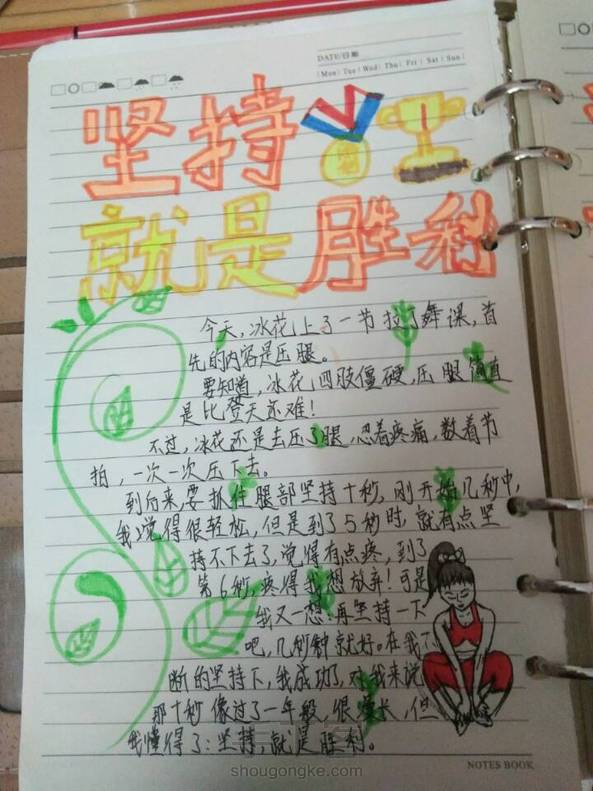 DATE/日期
Mon Tue Wed Thu Fri Sat Sun
坚持
就是胜利
今天,冰花上了一节技了舞课,首
先的内容是压腿。
要知道,冰花四肢僵硬,压腿简直
是比登天还难!
不过,冰花还是去压了腿,忍着疼痛,数着节
拍,一次一次压下去。
到后来,要抓住腿部坚持十秒,刚开始几秒中,
我觉得很轻松,但是到了5秒时,就有点坚
持不下去了,觉得有点疼,到了
第6秒,疼得我想放弃!可是
我又一想:再坚持一下
吧,几秒钟就好。在我不
断的坚持下,我成功了,对我来说
那十秒像过了一年般,很漫长,但
我懂得了:坚持,就是胜利。
NOTES BOOK
shougongke.com